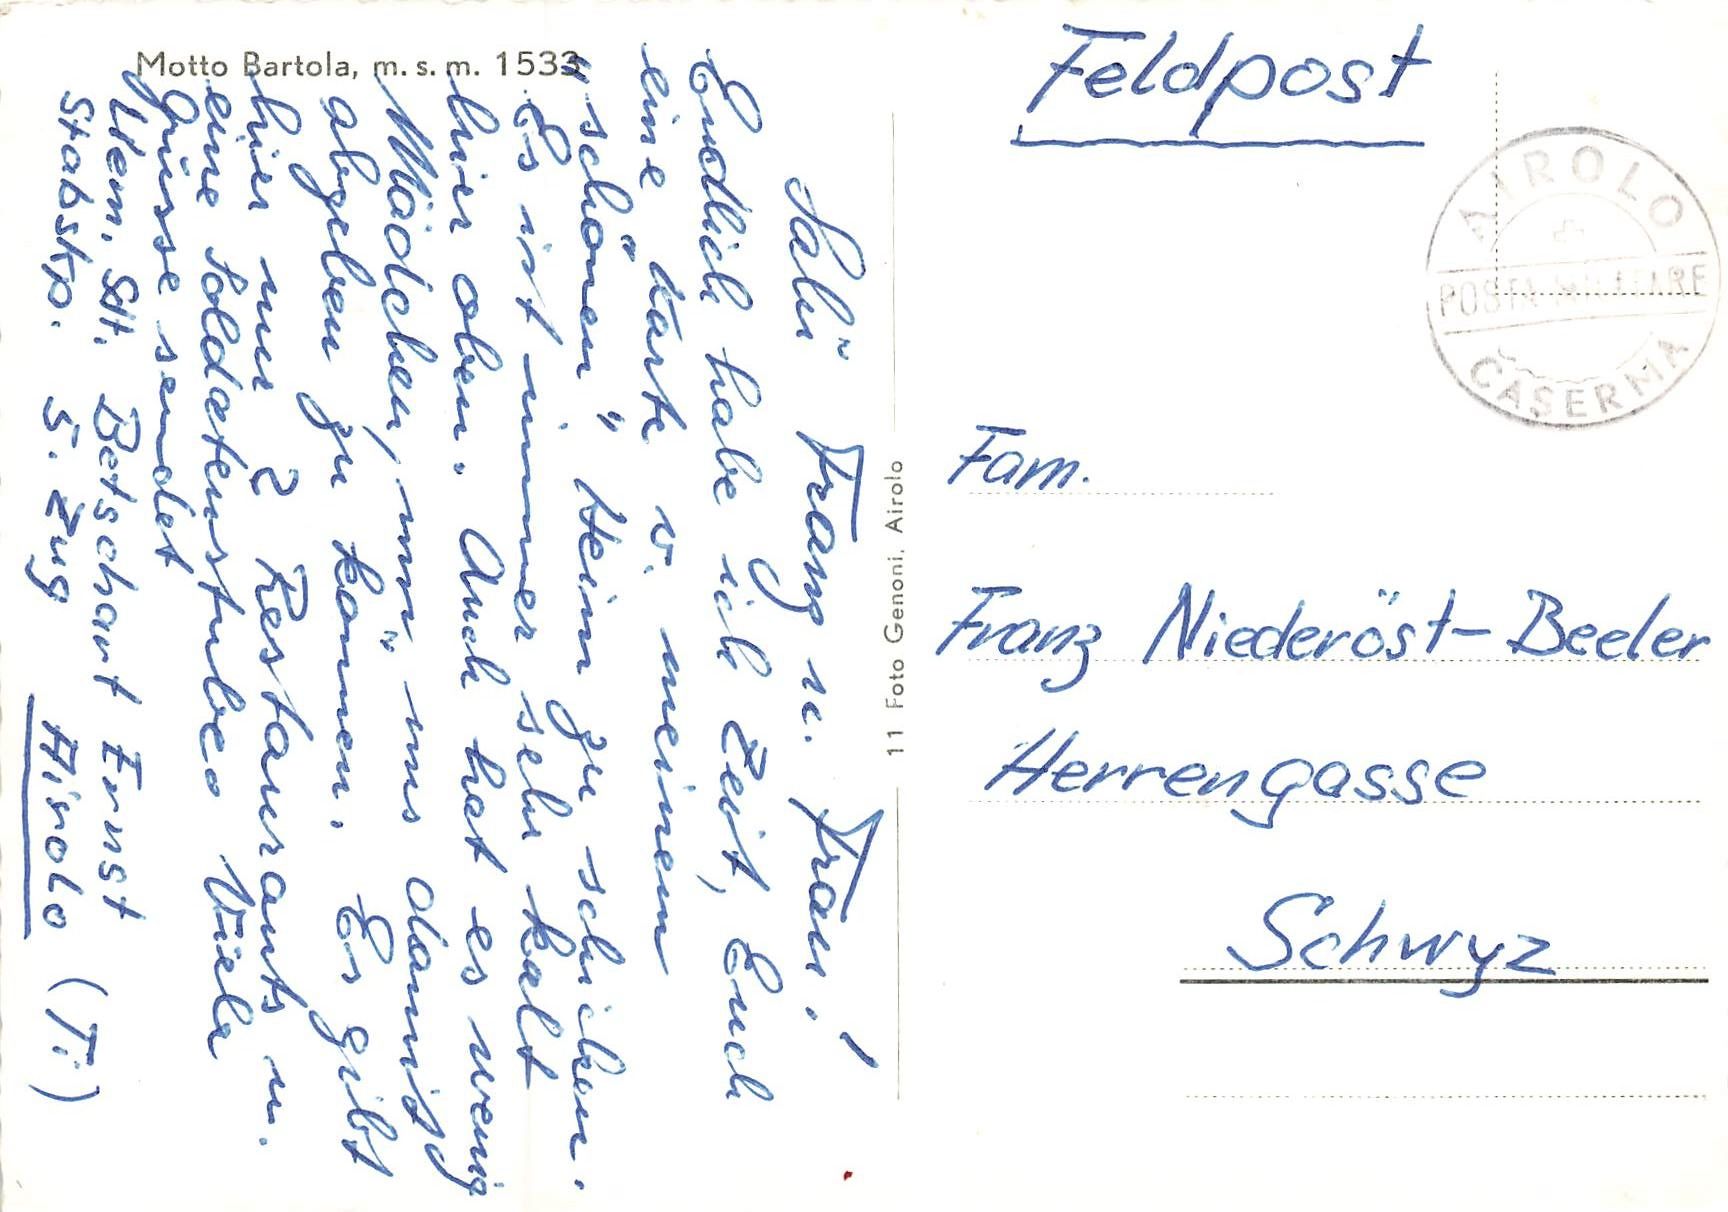 Motto Bartola, m. s. m. 1533
Salü Franz u. Frau!
Endlich habe ich Zeit, Euch
eine Karte v. meinem
"schönen" Heim zu schicken.
Es ist immer sehr kalt
hier oben. Auch hat es wenig
Mädchen, um uns
abgeben zu können. Es gibt
hier nur 2 Restaurants u.
eine Soldatenstube. Viele
Grüsse sendet
Betschart Ernst
Stabskp. 5. Zug Airolo (Ti)
11 Foto Genoni, Airolo
Feldpost
AIROLO
POSTA MILITARE
CASERMA
Fam.
Franz Niederöst-Beeler
Herrengasse
Schwyz